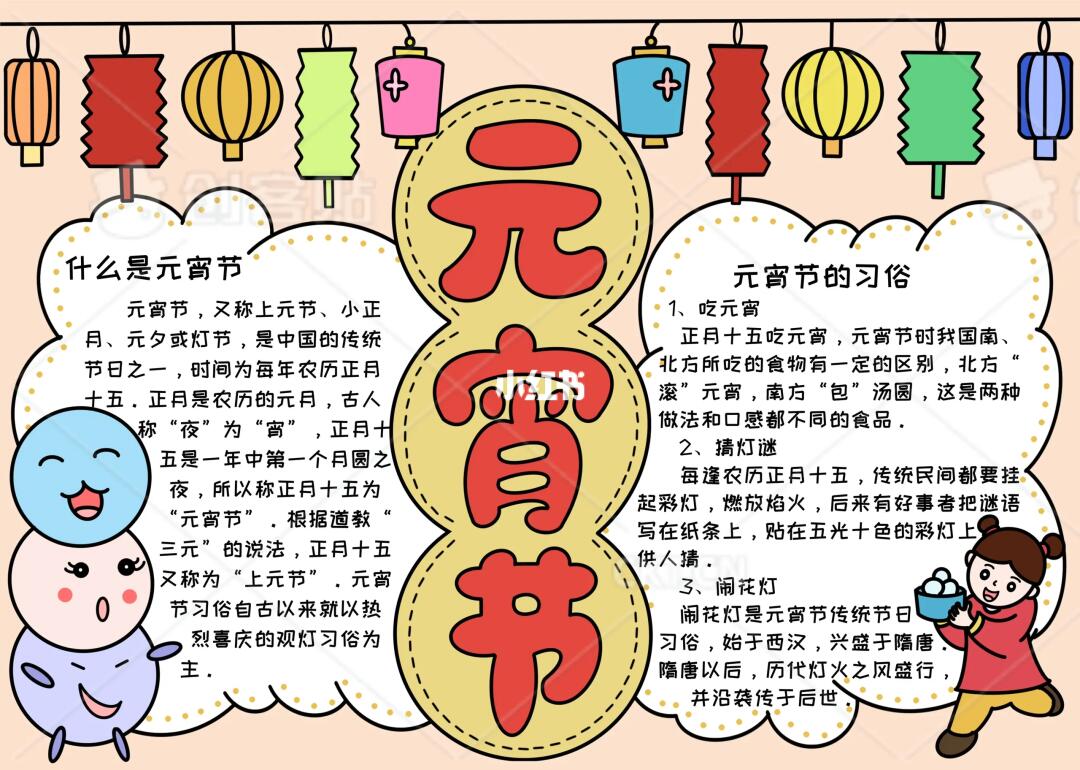 元宵节
小红书
什么是元宵节
元宵节，又称上元节、小正
月、元夕或灯节，是中国的传统
节日之一，时间为每年农历正月
十五．正月是农历的元月，古人
称“夜”为“宵”，正月十
五是一年中第一个月圆之
夜，所以称正月十五为
“元宵节”．根据道教“
三元”的说法，正月十五
又称为“上元节”．元宵
节习俗自古以来就以热
烈喜庆的观灯习俗为
主．
元宵节的习俗
1、吃元宵
正月十五吃元宵，元宵节时我国南、
北方所吃的食物有一定的区别，北方“
滚”元宵，南方“包”汤圆，这是两种
做法和口感都不同的食品．
2、猜灯谜
每逢农历正月十五，传统民间都要挂
起彩灯，燃放焰火，后来有好事者把谜语
写在纸条上，贴在五光十色的彩灯上
供人猜．
3、闹花灯
闹花灯是元宵节传统节日
习俗，始于西汉，兴盛于隋唐．
隋唐以后，历代灯火之风盛行，
并沿袭传于后世．
创客贴